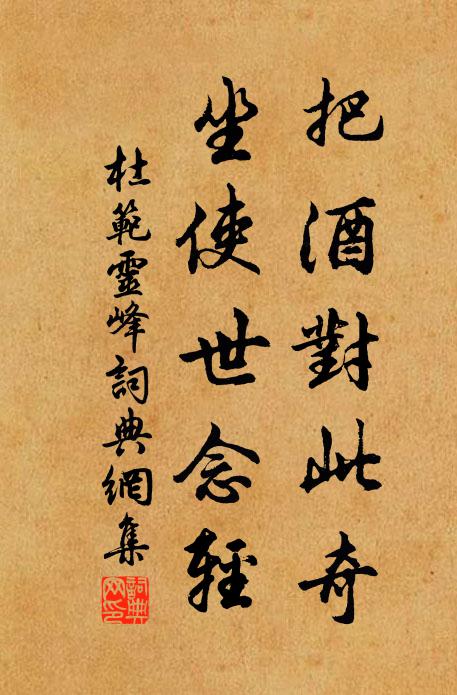 把酒對此奇
坐使世念輕
杜範靈峰詞典網集
詞典網印